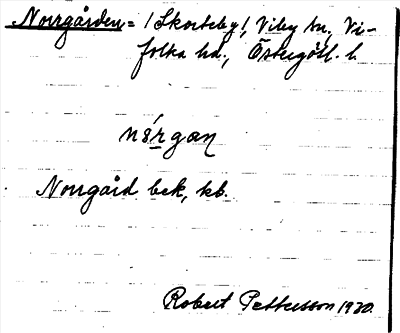 Norrgården = /Skorteby/, Viby sn, Vi-
folka hd., Östergötl. l.
nórgan
Norrgård bck, kb.
Robert Pettersson 1930.